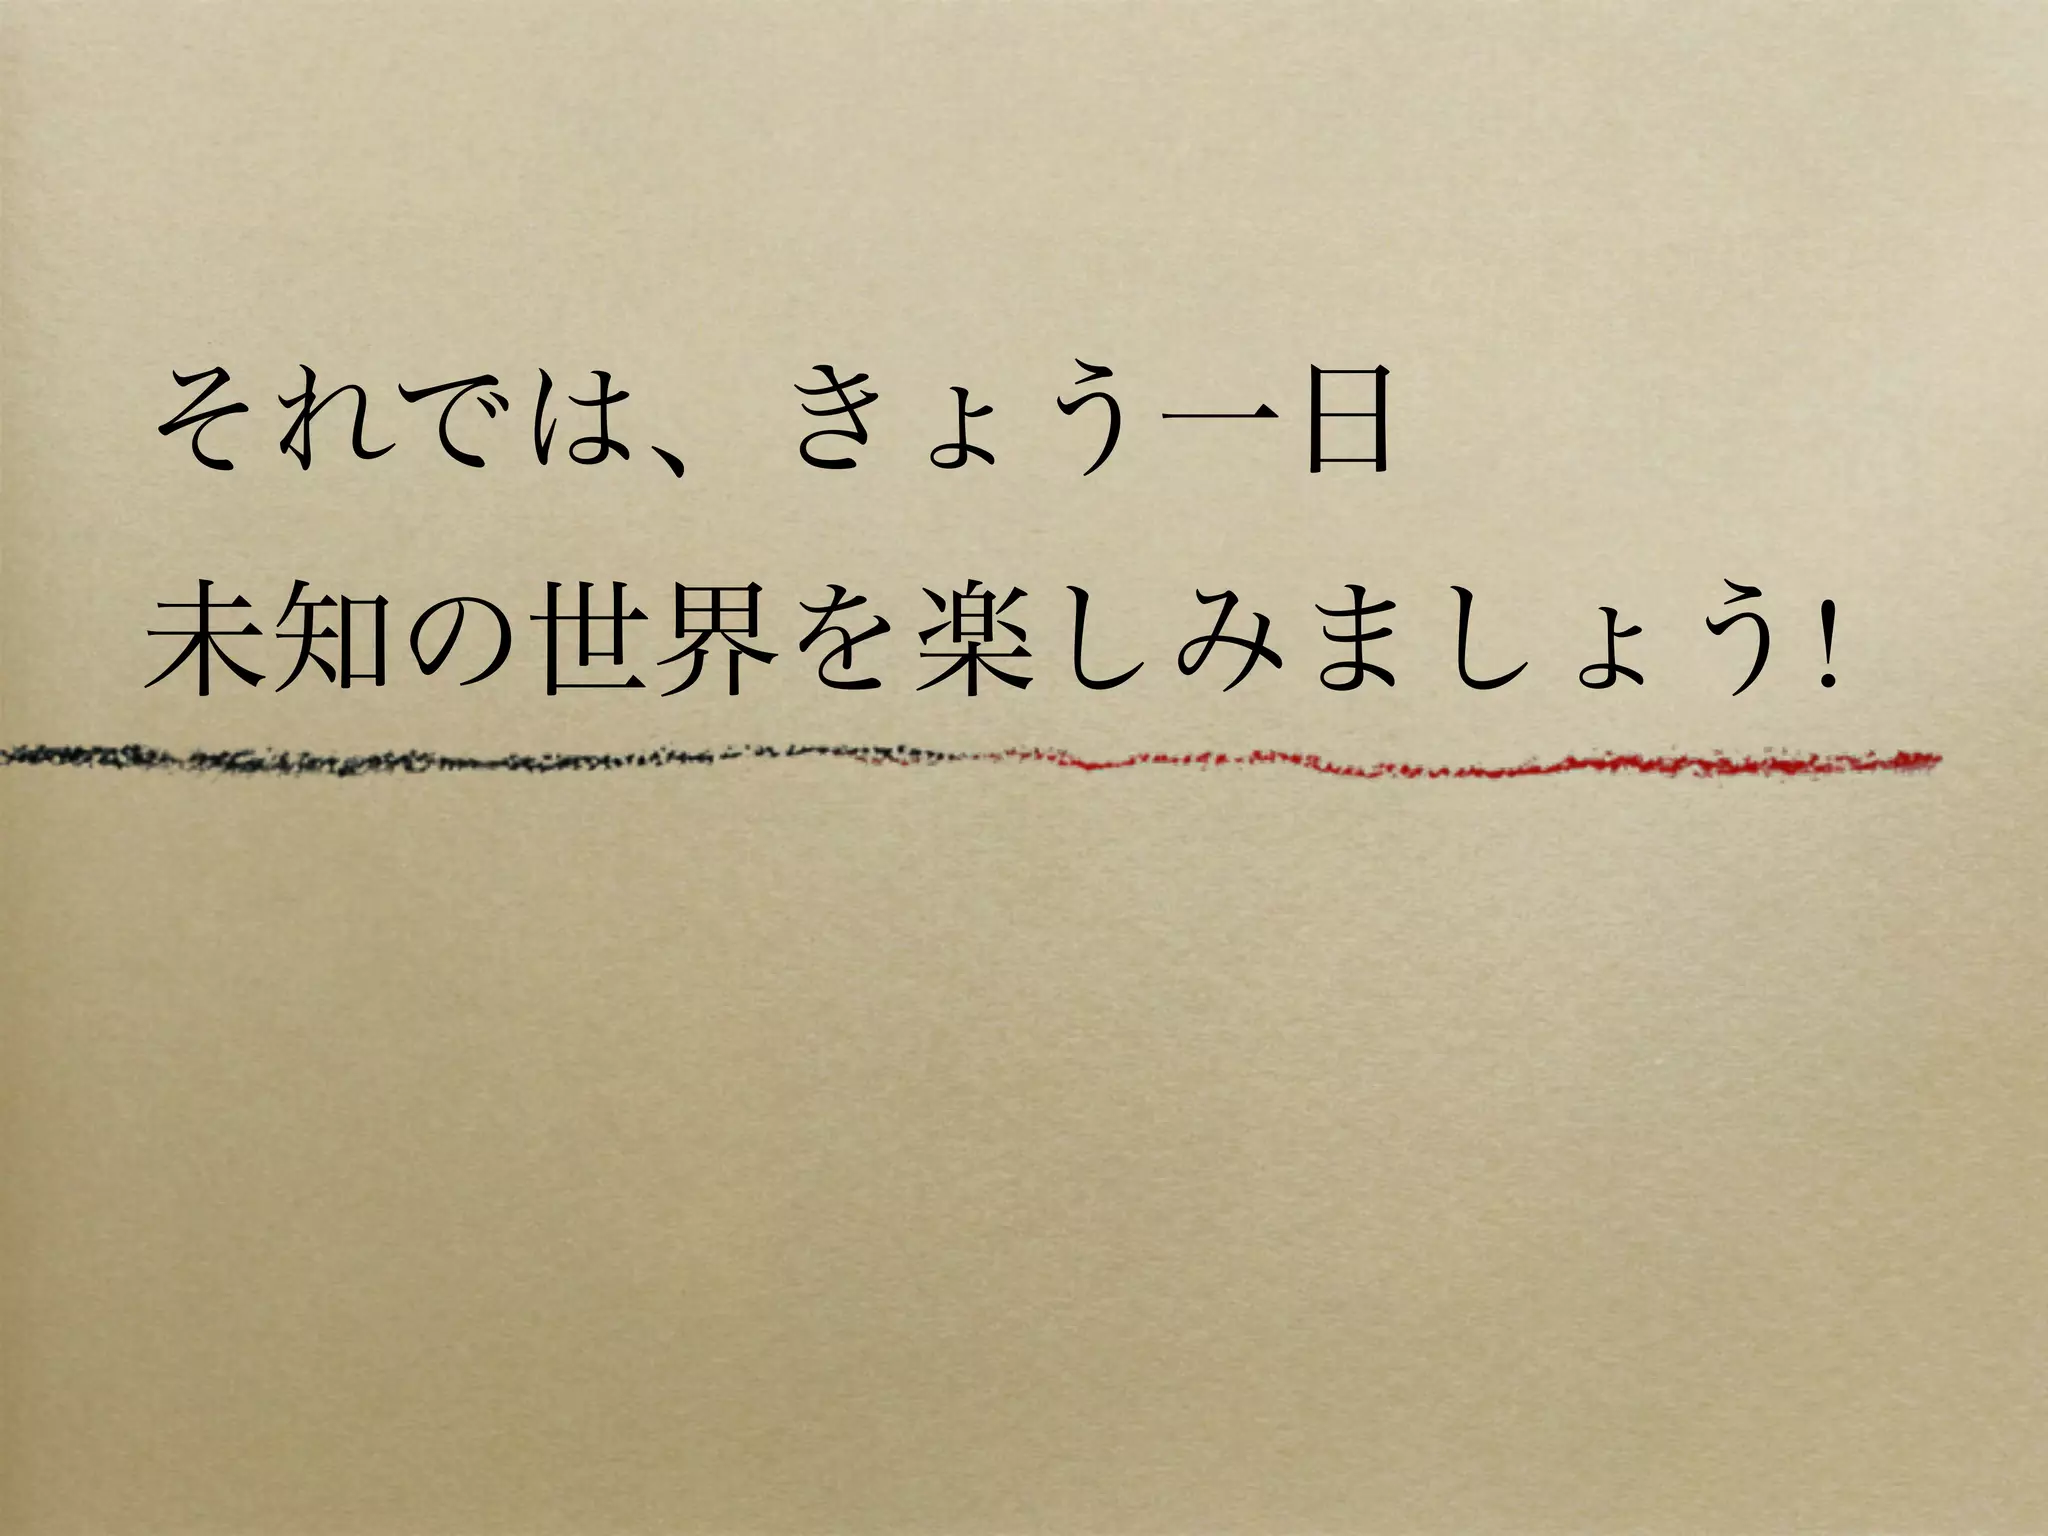 それでは、きょう一日
未知の世界を楽しみましょう!